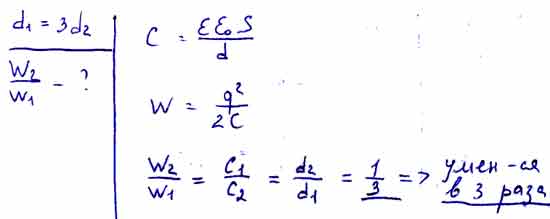 d₁ = 3d₂
W₂/W₁ - ?
C = εε₀S/d
W = q²/2C
W₂/W₁ = C₁/C₂ = d₂/d₁ = 1/3 => умен-ся
в 3 раза